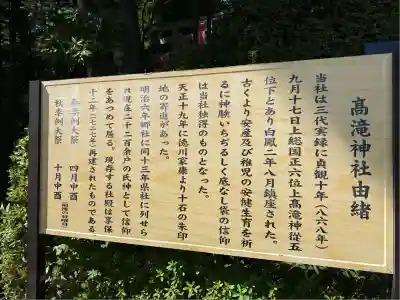 高滝神社由緒
当社は三代実録に貞観十年(八六八年)
九月十七日上総国正六位上高滝神従五
位下とあり白鳳二年八月鎮座された。
古くより安産及び稚児の安健生育を祈
るに神験いちぢるしく底なし袋の信仰
は当社独得のものとなった。
天正十九年に徳川家康より十石の朱印
地の寄進があった。
明治六年郷社に同十三年県社に列せら
れ現在二十二百余戸の氏神として信仰
をあつめて居る。現存する社殿は享保
十二年(七二七年)再建されたものである
春季例大祭 四月中酉
秋季例大祭 十月中酉